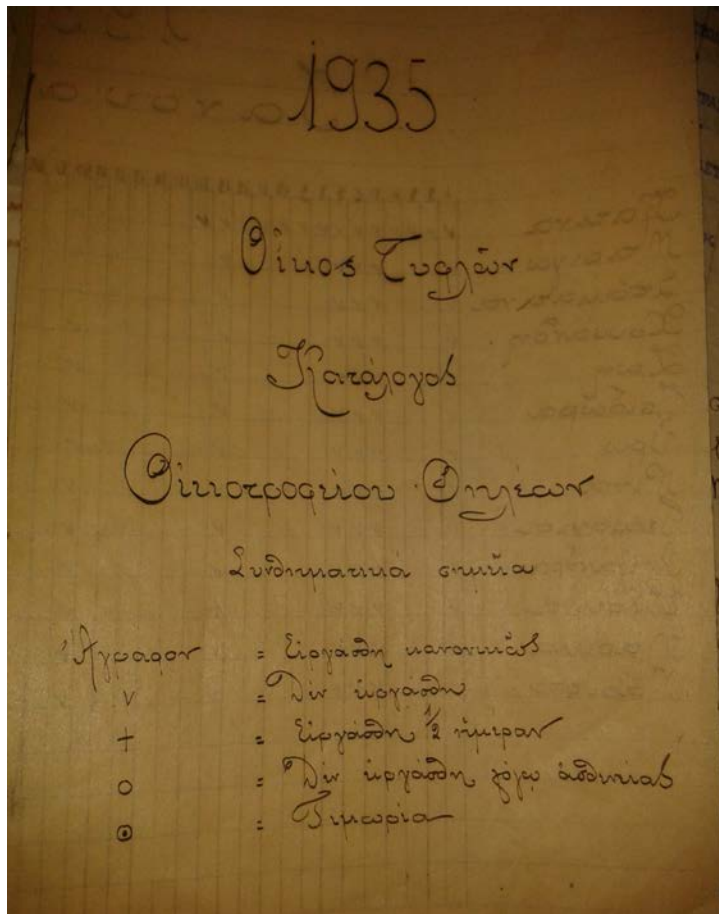 1935
Οἶκος Τυφλῶν
Κατάλογος
Οἰκοτροφείου Θηλέων
Συνθηματικά σημεῖα
Ἄγραφον = Εἰργάσθη κανονικῶς
v = Δέν εἰργάσθη
+ = Εἰργάσθη 1/2 ἡμέραν
ο = Δέν εἰργάσθη λόγῳ ἀσθενείας
⊙ = Τιμωρία